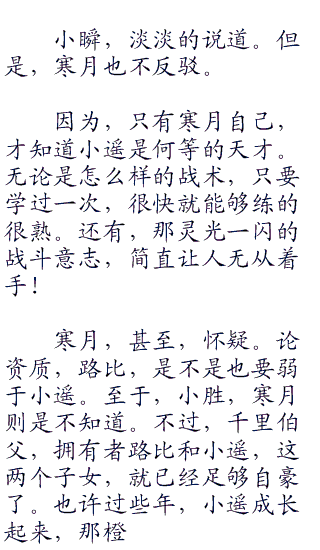 小瞬，淡淡的说道。但
是，寒月也不反驳。
因为，只有寒月自己，
才知道小遥是何等的天才。
无论是怎么样的战术，只要
学过一次，很快就能够练的
很熟。还有，那灵光一闪的
战斗意志，简直让人无从着
手！
寒月，甚至，怀疑。论
资质，路比，是不是也要弱
于小遥。至于，小胜，寒月
则是不知道。不过，千里伯
父，拥有者路比和小遥，这
两个子女，就已经足够自豪
了。也许过些年，小遥成长
起来，那橙